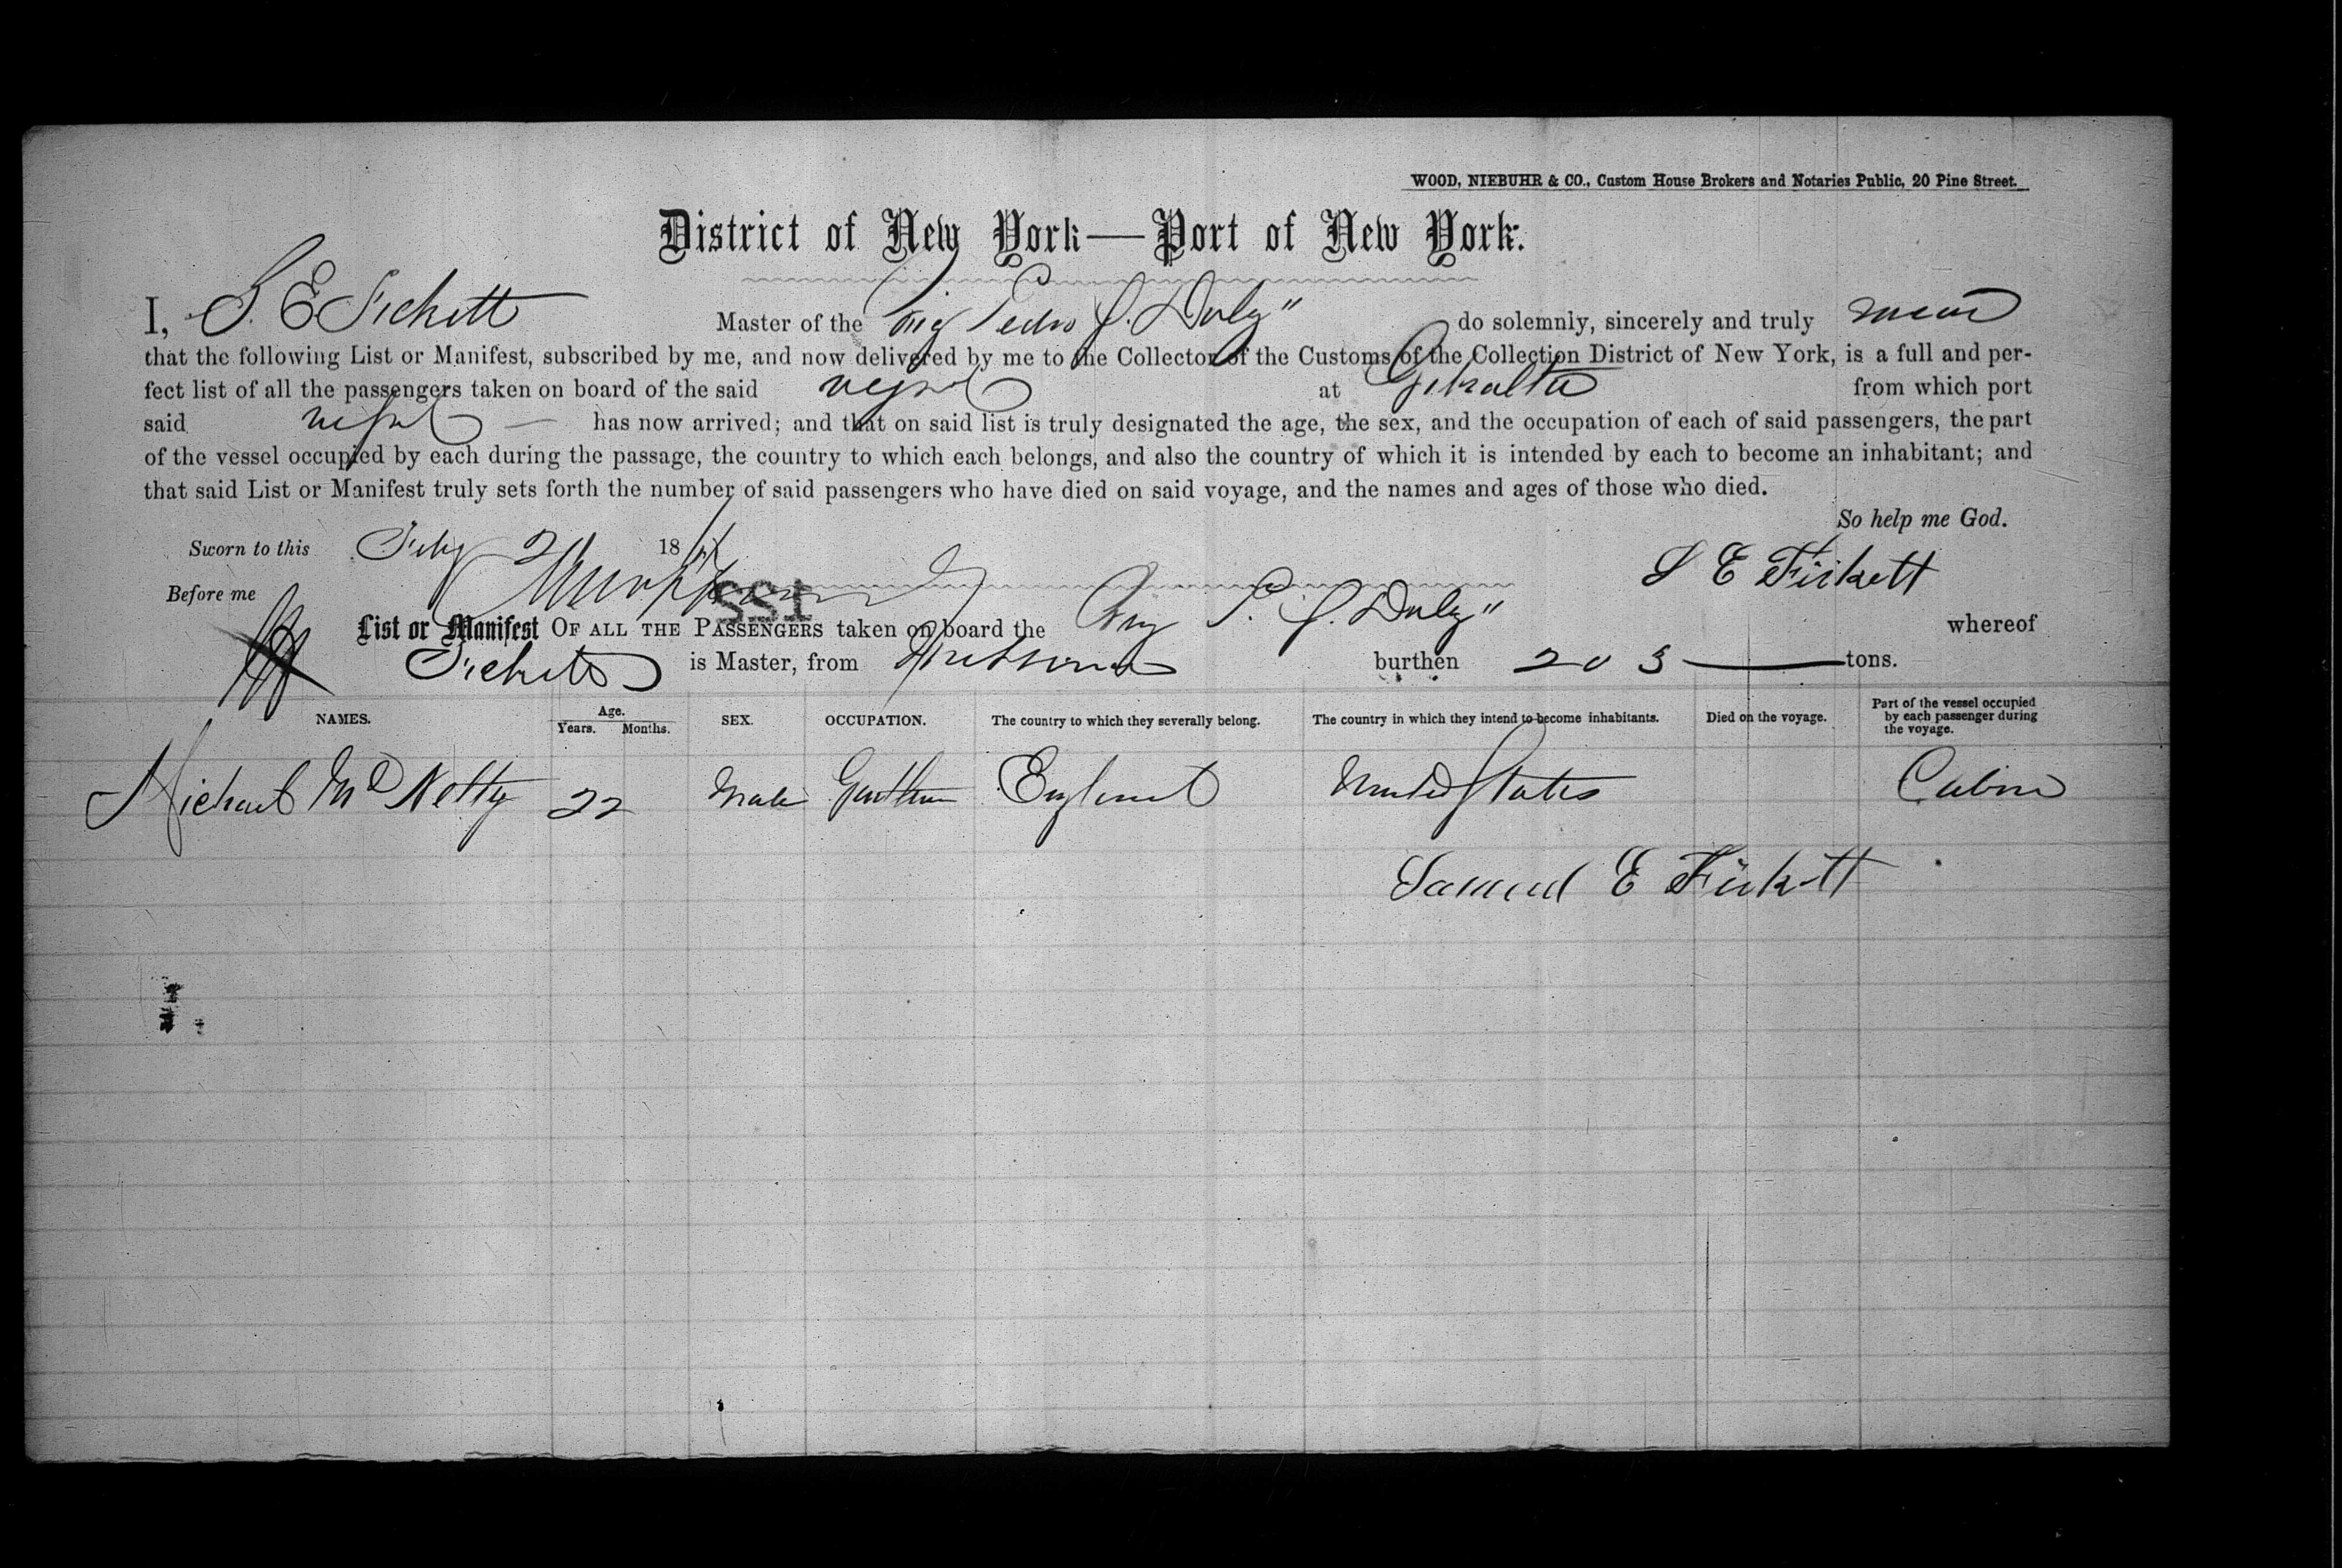 WOOD, NIEBUHR & CO., Custom House Brokers and Notaries Public, 20 Pine Street.
District of New York—Port of New York.
I, S. E Fickett Master of the Brig Pedro J. Daly" do solemnly, sincerely and truly swear
that the following List or Manifest, subscribed by me, and now delivered by me to the Collector of the Customs of the Collection District of New York, is a full and per-
fect list of all the passengers taken on board of the said vessel at from which port
said vessel — has now arrived; and that on said list is truly designated the age, the sex, and the occupation of each of said passengers, the part
of the vessel occupied by each during the passage, the country to which each belongs, and also the country of which it is intended by each to become an inhabitant; and
that said List or Manifest truly sets forth the number of said passengers who have died on said voyage, and the names and ages of those who died.
So help me God.
Sworn to this Feby 2 18
S E Fickett
Before me
155
List or Manifest OF ALL THE PASSENGERS taken on board the Brig P. J. Daly" whereof
Fickett is Master, from burthen 203 tons.
NAMES. Age. Years. Months. SEX. OCCUPATION. The country to which they severally belong. The country in which they intend to become inhabitants. Died on the voyage. Part of the vessel occupied by each passenger during the voyage.
Michael McNelty 22 Male England United States Cabin
Samuel E Fickett